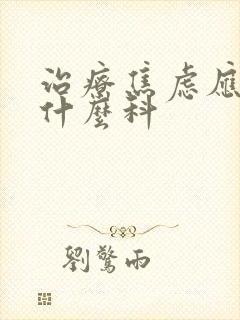 治療焦慮應
什麼科
劉驚雨